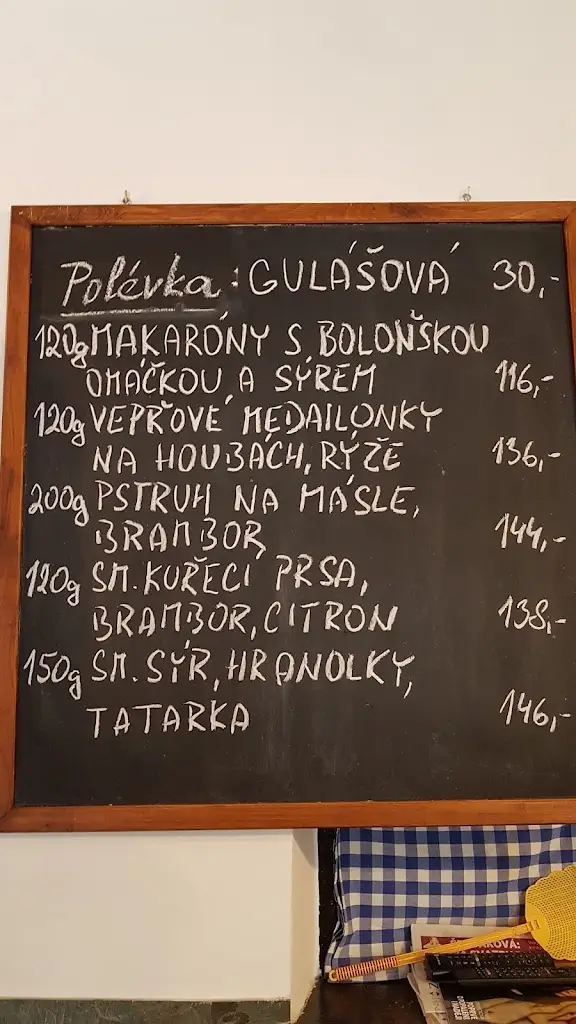 Polévka: GULÁŠOVÁ 30,-
120g MAKARÓNY S BOLOŇSKOU
OMAČKOU A SÝREM 116,-
120g VEPŘOVÉ MEDAILONKY
NA HOUBÁCH, RÝŽE 136,-
200g PSTRUH NA MÁSLE,
BRAMBOR 144,-
120g SM. KUŘECÍ PRSA,
BRAMBOR, CITRON 138,-
150g SM. SÝR, HRANOLKY,
TATARKA 146,-